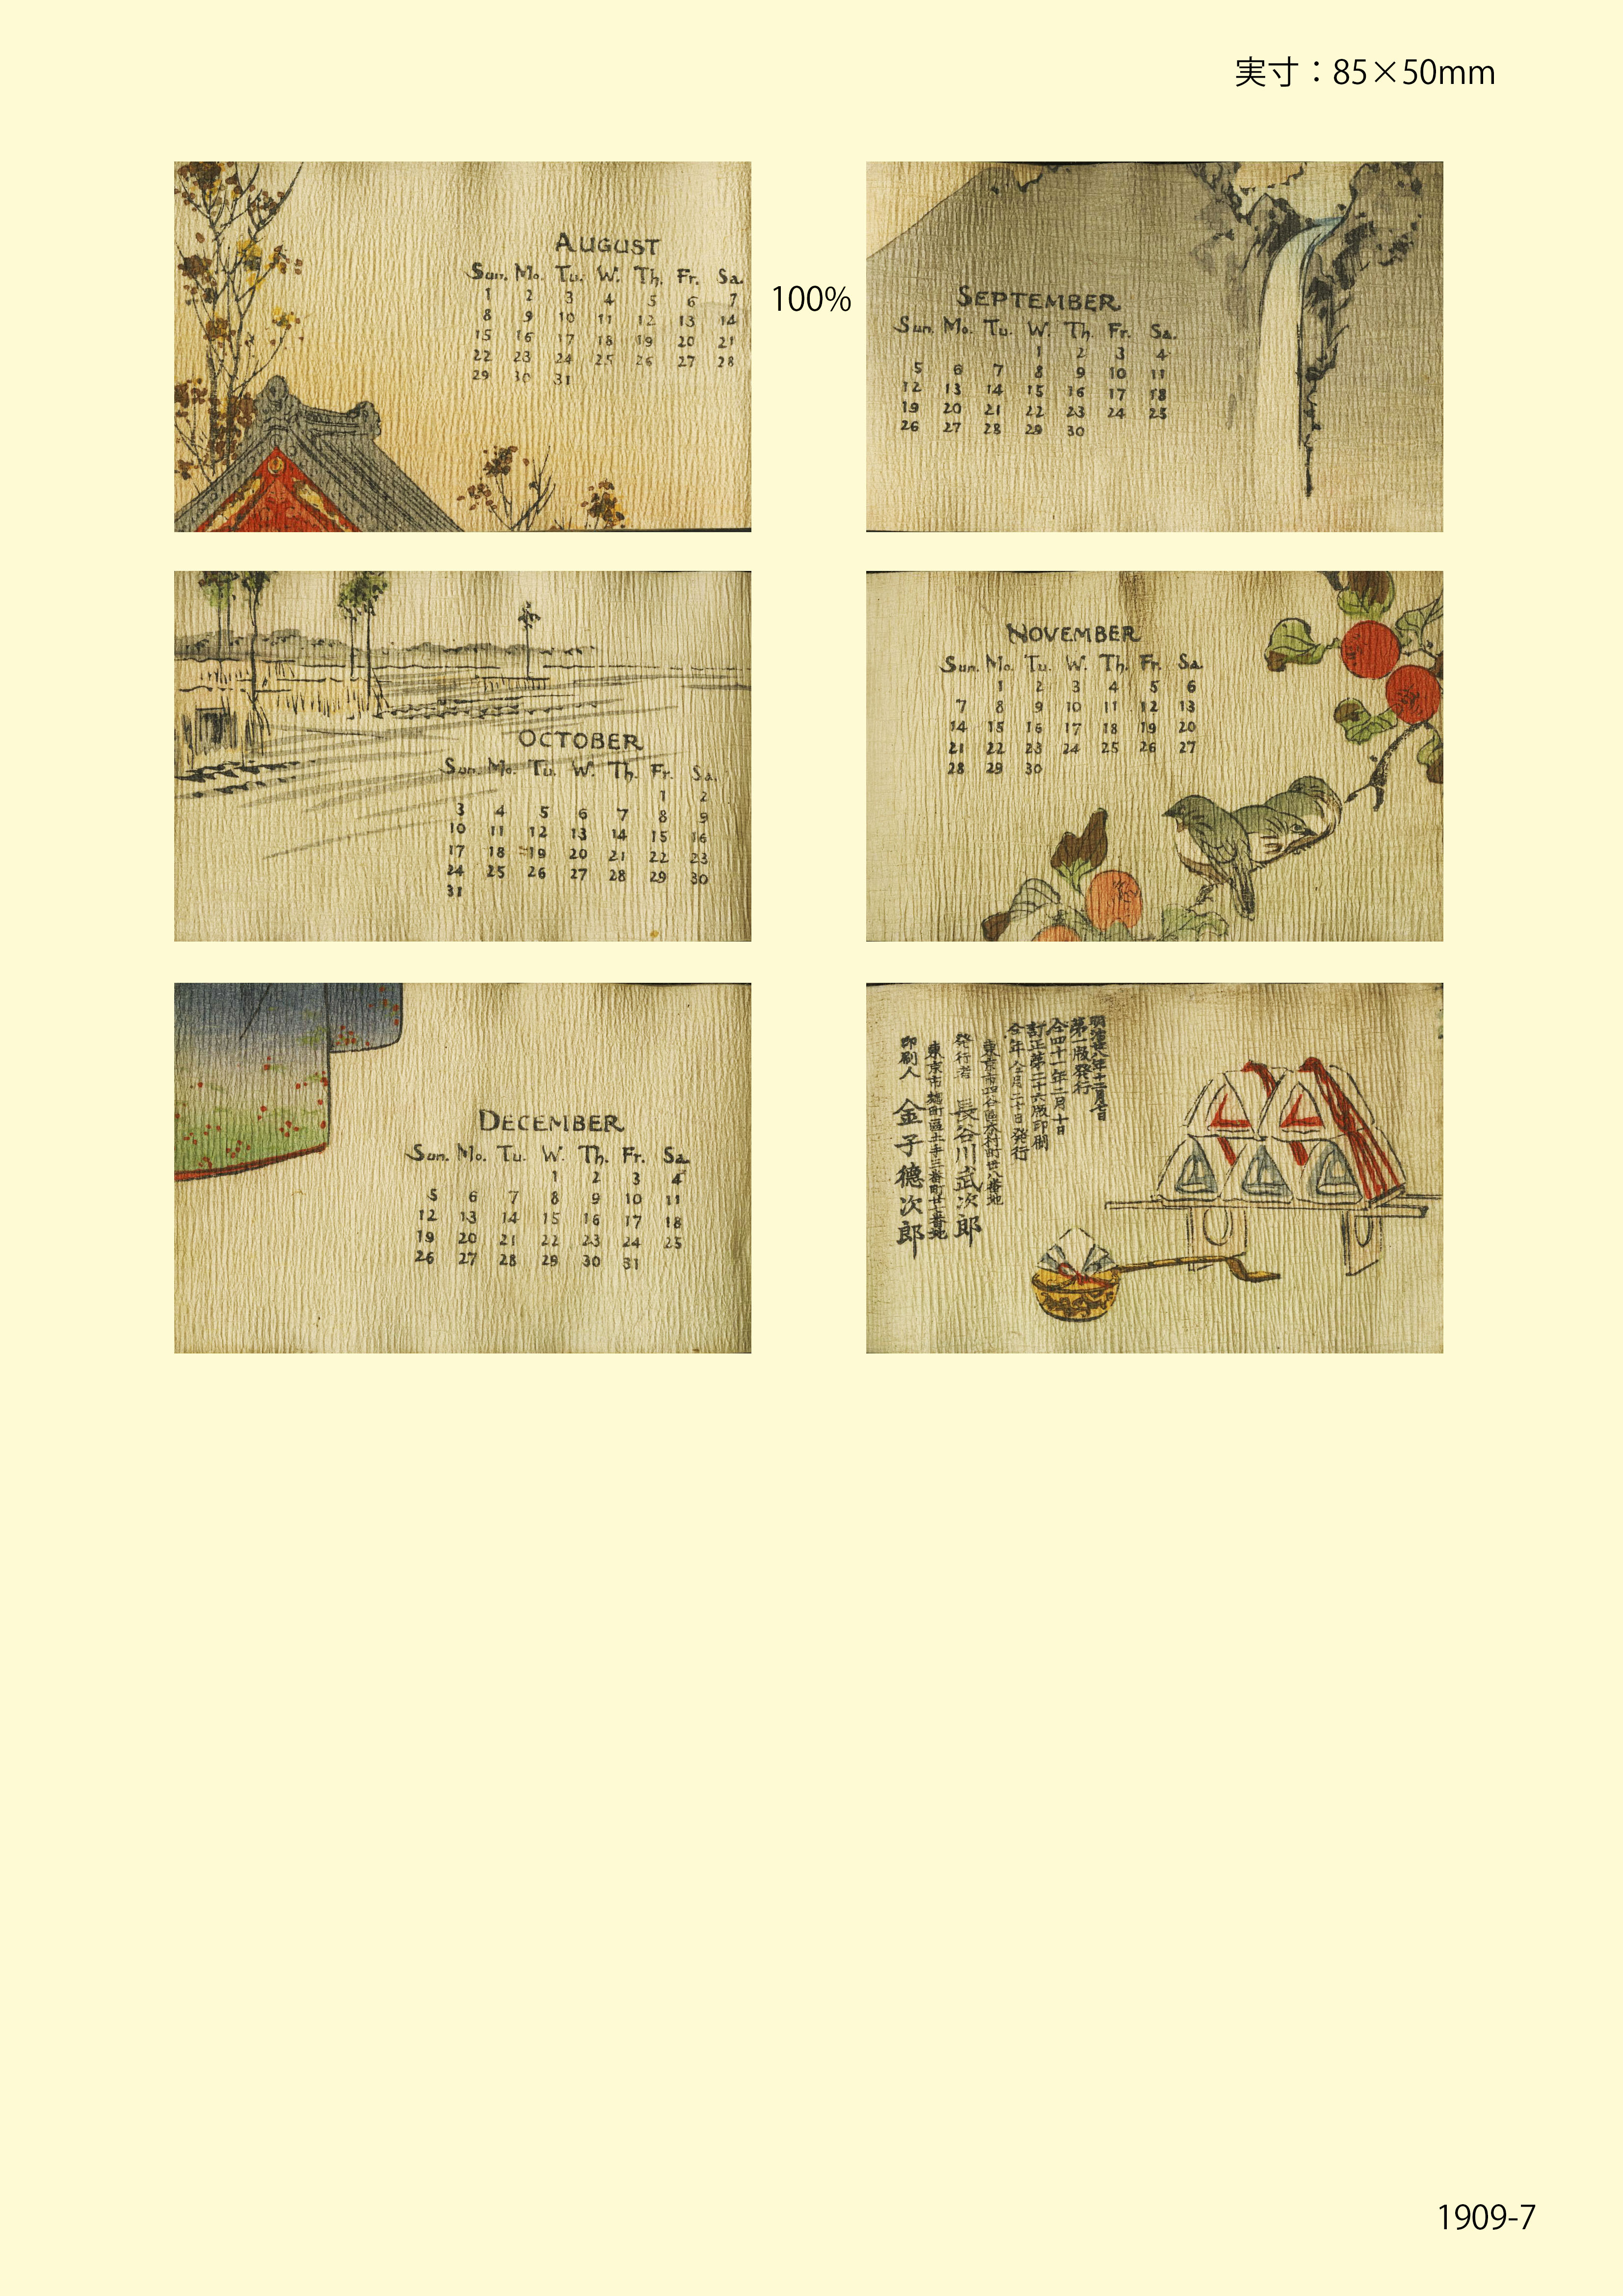 実寸：85×50mm
AUGUST
Sun. Mo. Tu. W. Th. Fr. Sa.
1 2 3 4 5 6 7
8 9 10 11 12 13 14
15 16 17 18 19 20 21
22 23 24 25 26 27 28
29 30 31
100%
SEPTEMBER
Sun. Mo. Tu. W. Th. Fr. Sa.
1 2 3 4
5 6 7 8 9 10 11
12 13 14 15 16 17 18
19 20 21 22 23 24 25
26 27 28 29 30
OCTOBER
Sun. Mo. Tu. W. Th. Fr. Sa.
1 2
3 4 5 6 7 8 9
10 11 12 13 14 15 16
17 18 19 20 21 22 23
24 25 26 27 28 29 30
31
NOVEMBER
Sun. Mo. Tu. W. Th. Fr. Sa
1 2 3 4 5 6
7 8 9 10 11 12 13
14 15 16 17 18 19 20
21 22 23 24 25 26 27
28 29 30
DECEMBER
Sun. Mo. Tu. W. Th. Fr. Sa
1 2 3 4
5 6 7 8 9 10 11
12 13 14 15 16 17 18
19 20 21 22 23 24 25
26 27 28 29 30 31
明治廿八年十二月七日
第一版発行
仝四十一年二月十日
訂正第二十六版印刷
仝年仝月二十日発行
東京市四谷區本村町卅八番地
発行者 長谷川武次郎
東京市麹町區土手三番町廿七番地
印刷人 金子德次郎
1909-7